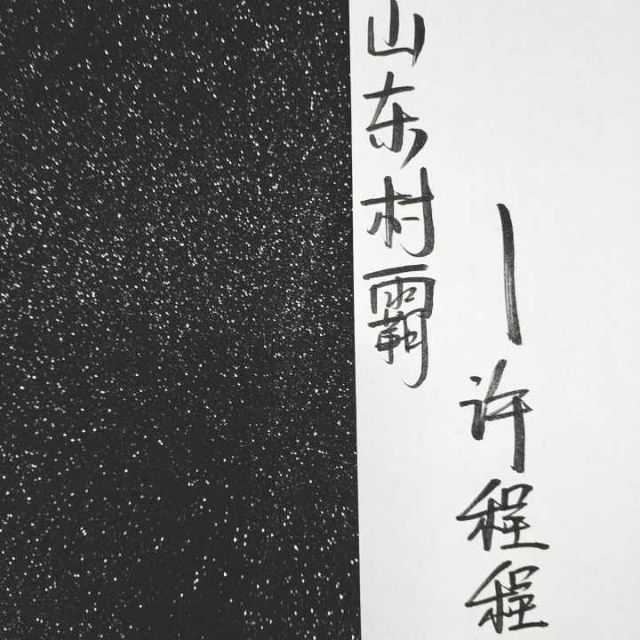 山东村霸
—许程程